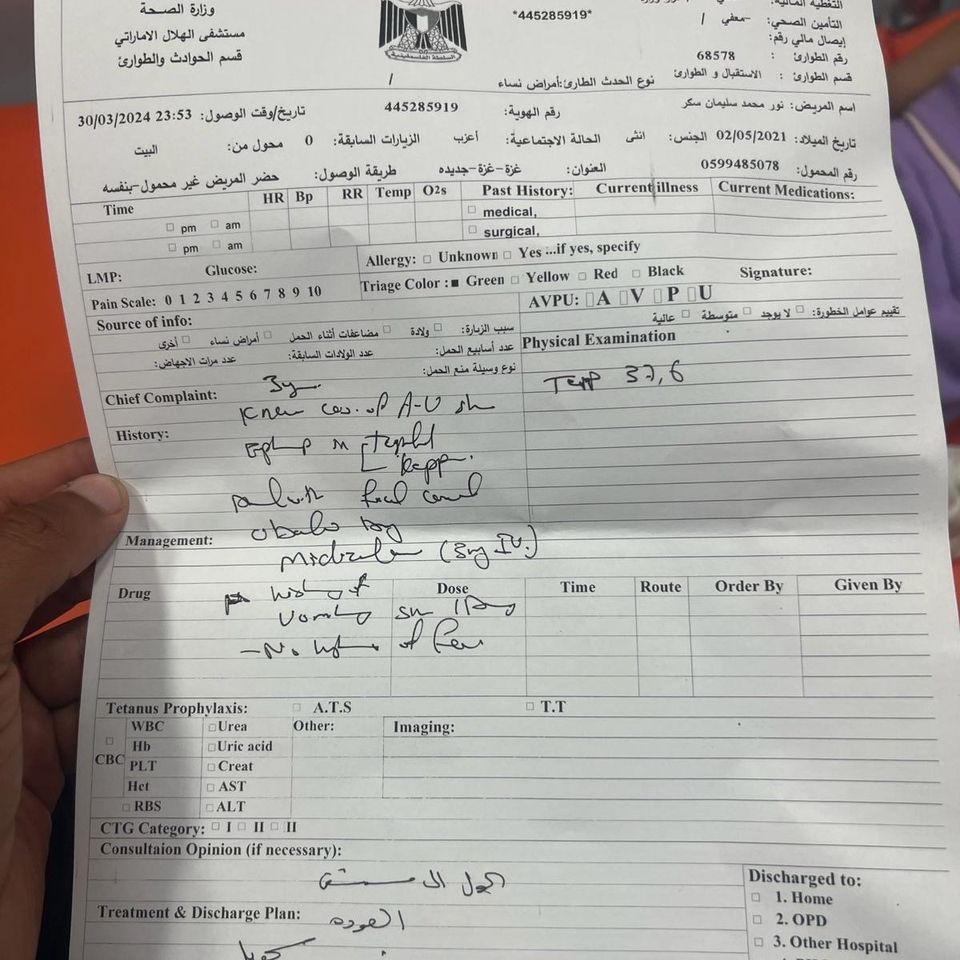 وزارة الصحة
مستشفى الهلال الاماراتي
قسم الحوادث والطوارئ
السلطة الفلسطينية
*445285919*
التغطية المالية:
التأمين الصحي: -معفي /
إيصال مالي رقم:
رقم الطوارئ : 68578
قسم الطوارئ : الاستقبال و الطوارئ نوع الحدث الطارئ:أمراض نساء /
اسم المريض: نور محمد سليمان سكر رقم الهوية: 445285919 تاريخ/وقت الوصول: 30/03/2024 23:53
تاريخ الميلاد: 02/05/2021 الجنس: انثى الحالة الاجتماعية: أعزب الزيارات السابقة: 0 محول من: البيت
رقم المحمول: 0599485078 العنوان: غزة-غزة-جديده طريقة الوصول: حضر المريض غير محمول-بنفسه
Time HR Bp RR Temp O2s Past History: Current illness Current Medications:
□ pm □ am □ medical,
□ pm □ am □ surgical,
LMP: Glucose: Allergy: □ Unknown □ Yes ...if yes, specify
Pain Scale: 0 1 2 3 4 5 6 7 8 9 10 Triage Color : ■ Green □ Yellow □ Red □ Black Signature:
Source of info: AVPU: □A □V □P □U
تقييم عوامل الخطورة: □ لا يوجد □ متوسطة □ عالية
سبب الزيارة: □ ولادة □ مضاعفات أثناء الحمل □ أمراض نساء □ أخرى
عدد أسابيع الحمل: عدد الولادات السابقة: عدد مرات الاجهاض:
نوع وسيلة منع الحمل:
Physical Examination
Temp 37,6
Chief Complaint: 3y
of A-V
History:
Management:
(3mg IV.)
Drug Dose Time Route Order By Given By
history of
Vomiting
- No of
Tetanus Prophylaxis: □ A.T.S □ T.T
□ CBC WBC □ Urea Other: Imaging:
Hb □ Uric acid
PLT □ Creat
Hct □ AST
□ RBS □ ALT
CTG Category: □ I □ II □ II
Consultaion Opinion (if necessary):
Treatment & Discharge Plan: العودة
Discharged to:
□ 1. Home
□ 2. OPD
□ 3. Other Hospital